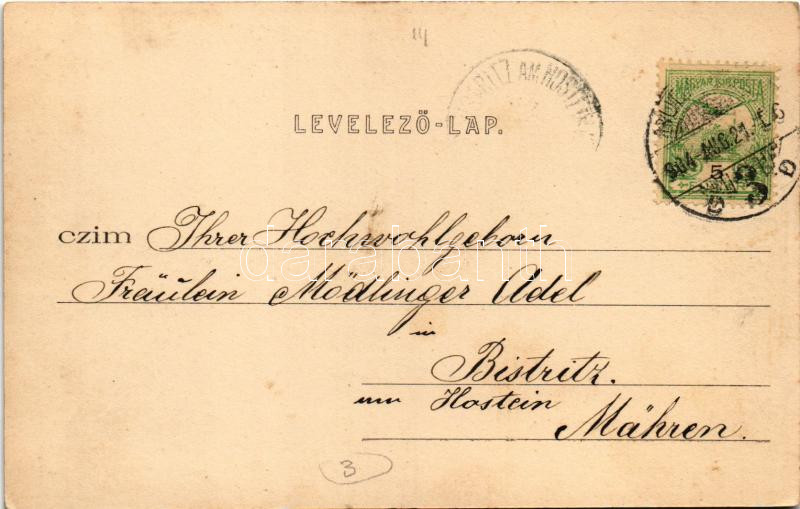 BISTRITZ AM HOSTEIN
MAGYAR KIR. POSTA
904 AUG. 21.
5
3
D
LEVELEZŐ-LAP.
czim Ihrer Hochwohlgeborn
darabanth
Fräulein Mödlinger Adel
in
Bistritz.
am Hostein
Mähren.
3